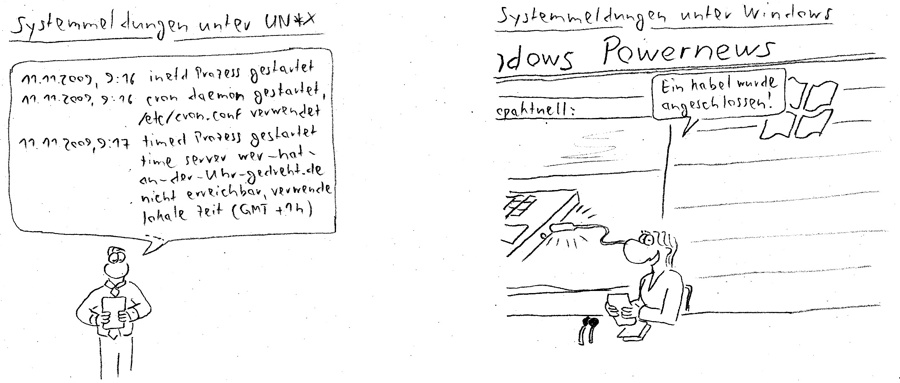 Systemmeldungen unter UN*X
11.11.2009, 9:16 inetd Prozess gestartet
11.11.2009, 9:16 cron daemon gestartet,
/etc/cron.conf verwendet
11.11.2009, 9:17 timed Prozess gestartet
time server wer-hat-
an-der-Uhr-gedreht.de
nicht erreichbar, verwende
lokale Zeit (GMT +1h)
Systemmeldungen unter Windows
dows Powernews
Ein Kabel wurde
angeschlossen!
epaktuell: